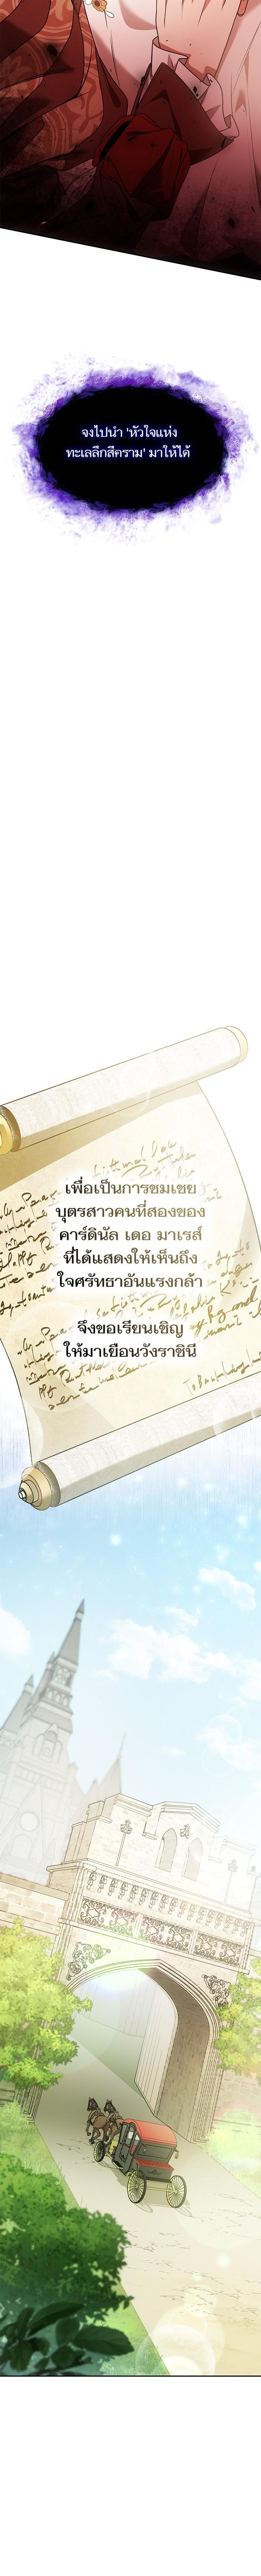 จงไปนำ 'หัวใจแห่ง
ทะเลลึกสีคราม' มาให้ได้
เพื่อเป็นการชมเชย
บุตรสาวคนที่สองของ
คาร์ดินัล เดอ มาเรส์
ที่ได้แสดงให้เห็นถึง
ใจศรัทธาอันแรงกล้า
จึงขอเรียนเชิญ
ให้มาเยือนวังราชินี